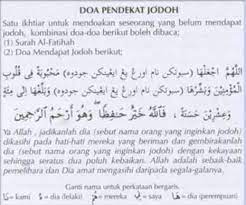 DOA PENDEKAT JODOH
Satu ikhtiar untuk mendoakan seseorang yang belum mendapat
jodoh, kombinasi doa-doa berikut boleh dibaca;
(1) Surah Al-Fatihah
(2) Doa Mendapat Jodoh berikut;
اَللّٰهُمَّ اجْعَلْهَا (سبوتكن نام اورڠ يڠ ايڠينكن جودوه) مَحْبُوْبَةً فِي قُلُوْبِ
الْمُؤْمِنِيْنَ وَبَشِّرْهَا (سبوتكن نام اورڠ يڠ ايڠينكن جودوه) وَبَلِّغْهَا إِلَى مِائَةٍ
وَعِشْرِيْنَ حَسَنَةً، فَاللّٰهُ خَيْرٌ حَفِيْظًا وَهُوَ أَرْحَمُ الرَّاحِمِيْنَ
Ya Allah, jadikanlah dia (sebut nama orang yang inginkan jodoh)
dikasihi pada hati-hati mereka yang beriman dan gembirakanlah
dia (sebut nama orang yang inginkan jodoh) dengan kekayaan
sehingga seratus dua poluh kebaikan. Allah adalah sebaik-baik
pemelihara dan Dia amat mengasihi daripada segala-galanya.
Ganti nama untuk perkataan bergaris.
= kami = dia (lelaki) = mereka = saya = dia (p)